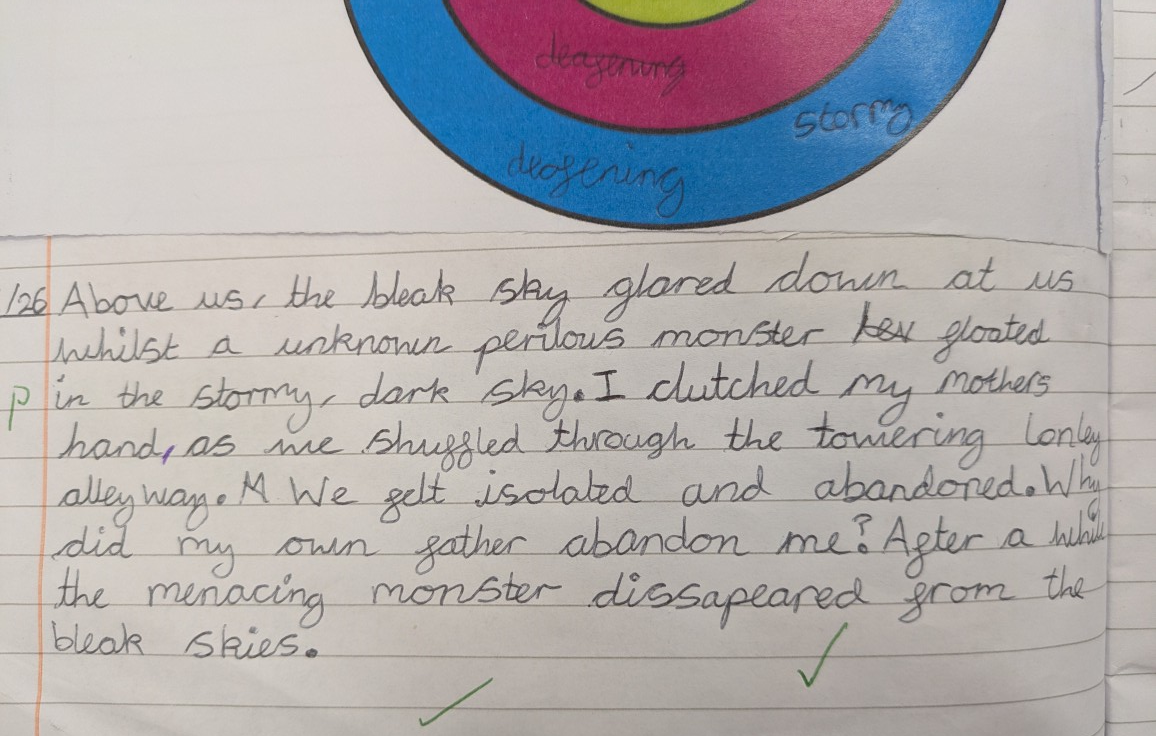 deafening
stormy
deafening
/26 Above us, the bleak sky glared down at us
whilst a unknown perilous monster gloated
P in the stormy, dark sky. I clutched my mothers
hand, as we shuffled through the towering lonley
alleyway. M We felt isolated and abandoned. Why
did my own father abandon me? After a while
the menacing monster dissapeared from the
bleak skies.